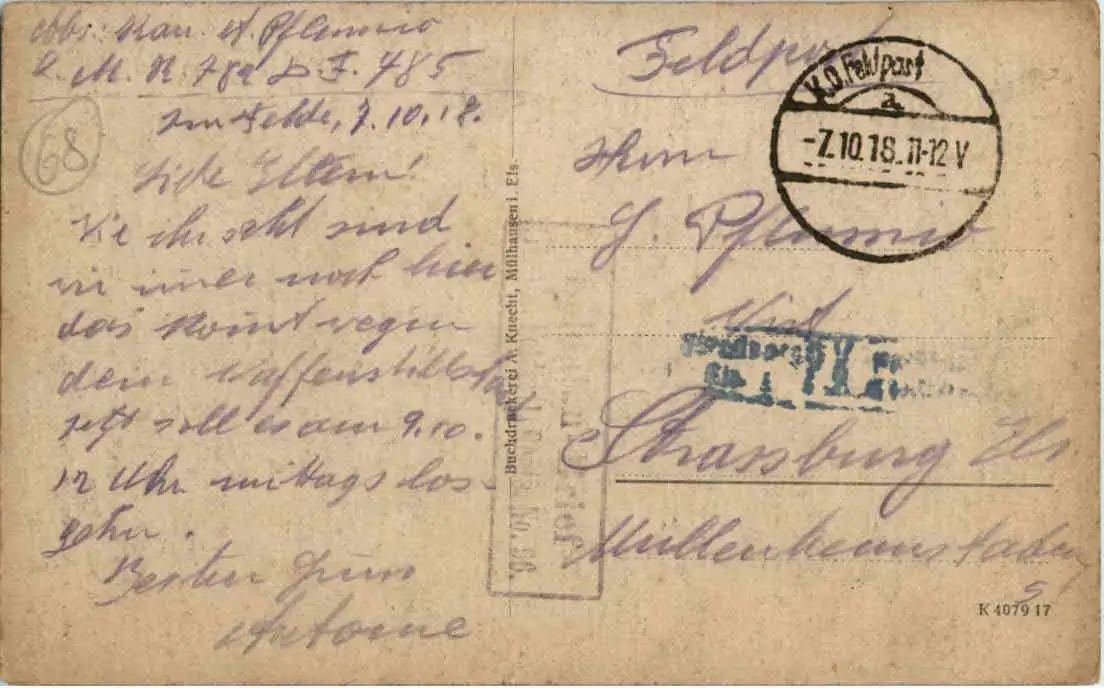 Abs: Kan. A. Pflumio
L. M. K. 782 D. F. 485
Im Felde, 7.10.18.
68
Liebe Eltern!
Wie ihr seht sind
wir imer noch hier
das komt wegen
dem Waffenstillsta
jetzt soll es am 9.10.
12 Uhr mittags los-
gehn.
Besten Gruss
Antoine
Buchdruckerei A. Knecht, Mülhausen i. Els.
Feldpost
K.D. Feldpost
a
-7.10.18. 11-12 V
Herrn
G. Pflumio
Wirt
Strassburg Els.
K 4079 17